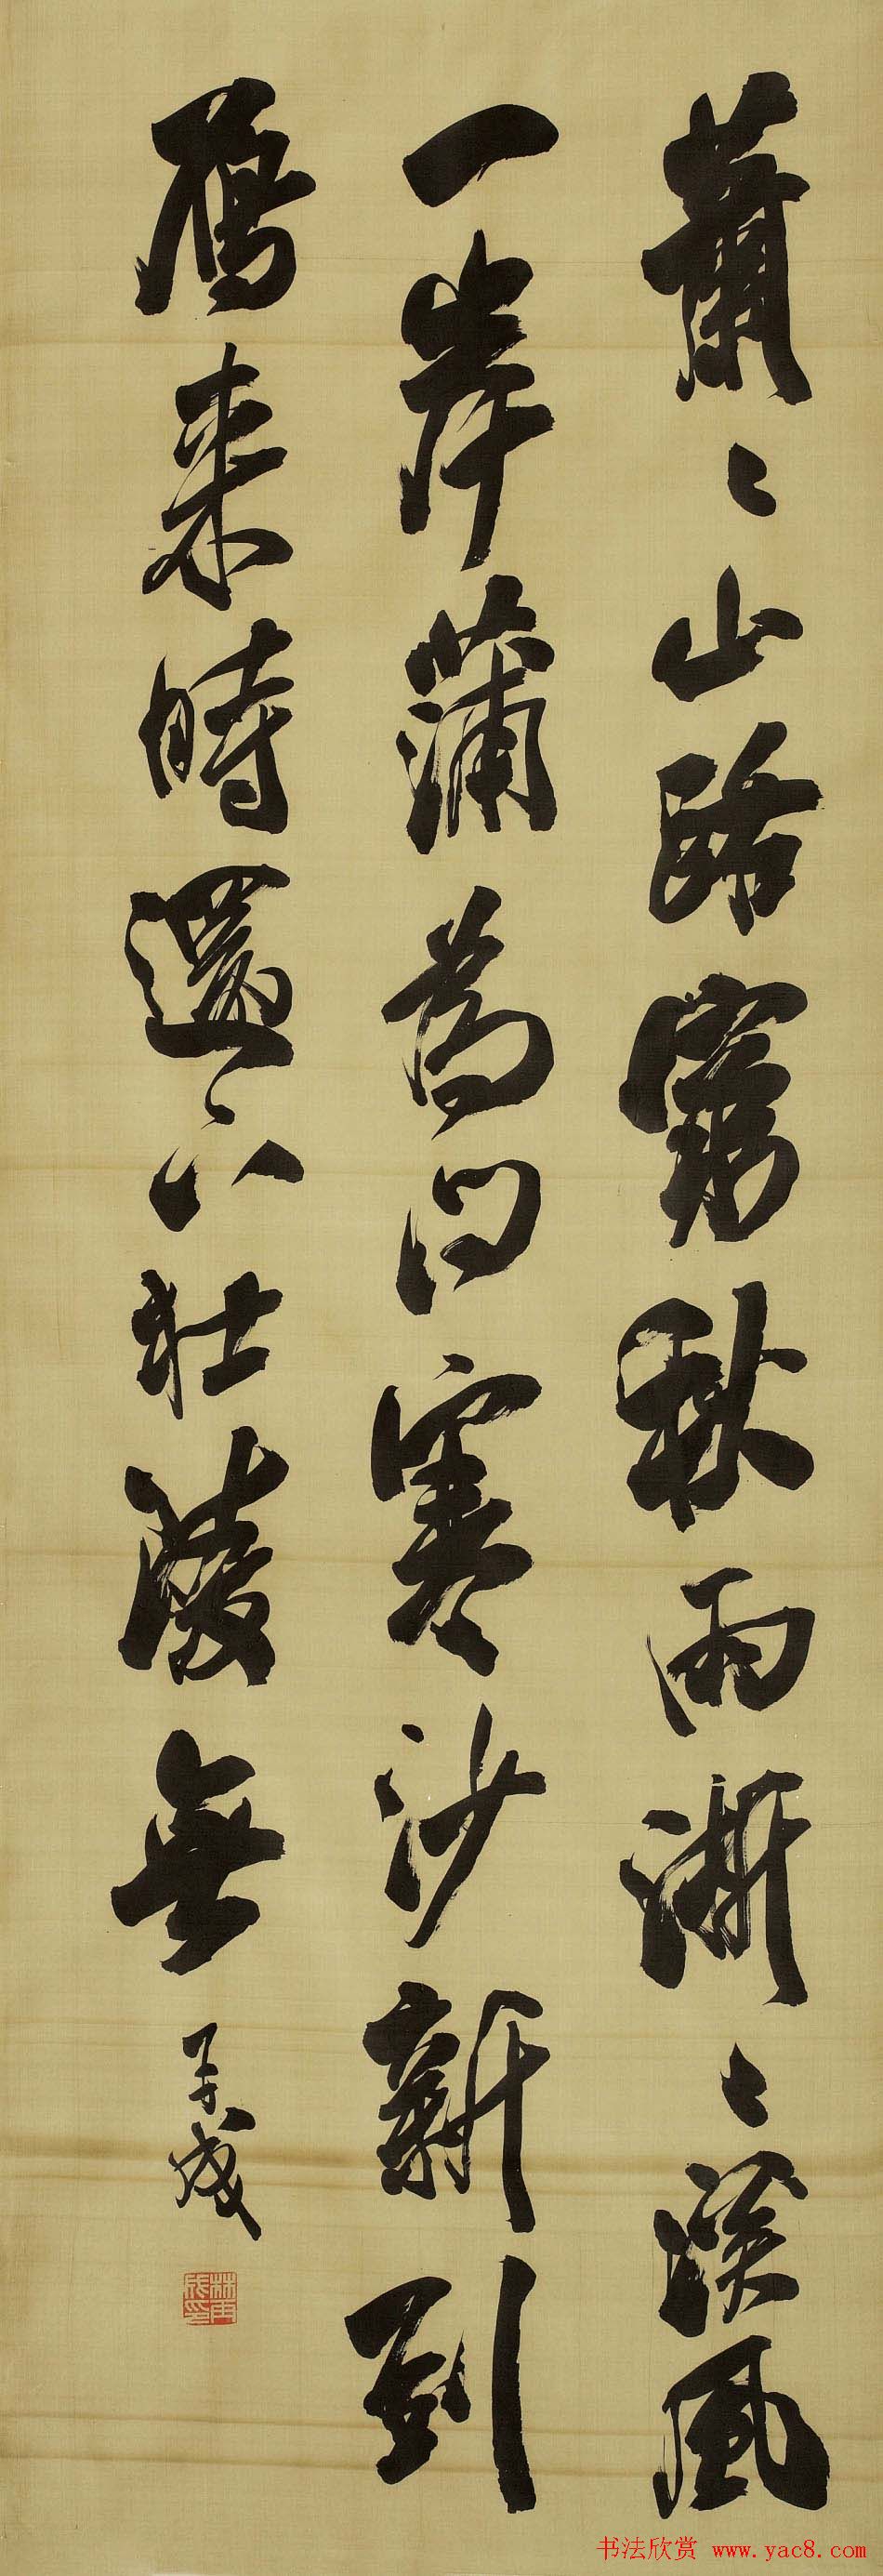 蕭〻山路窮秋雨淅〻溪風
一岸蒲為問寒沙新到
鴈来時還下杜陵無
子成
书法欣赏 www.yac8.com